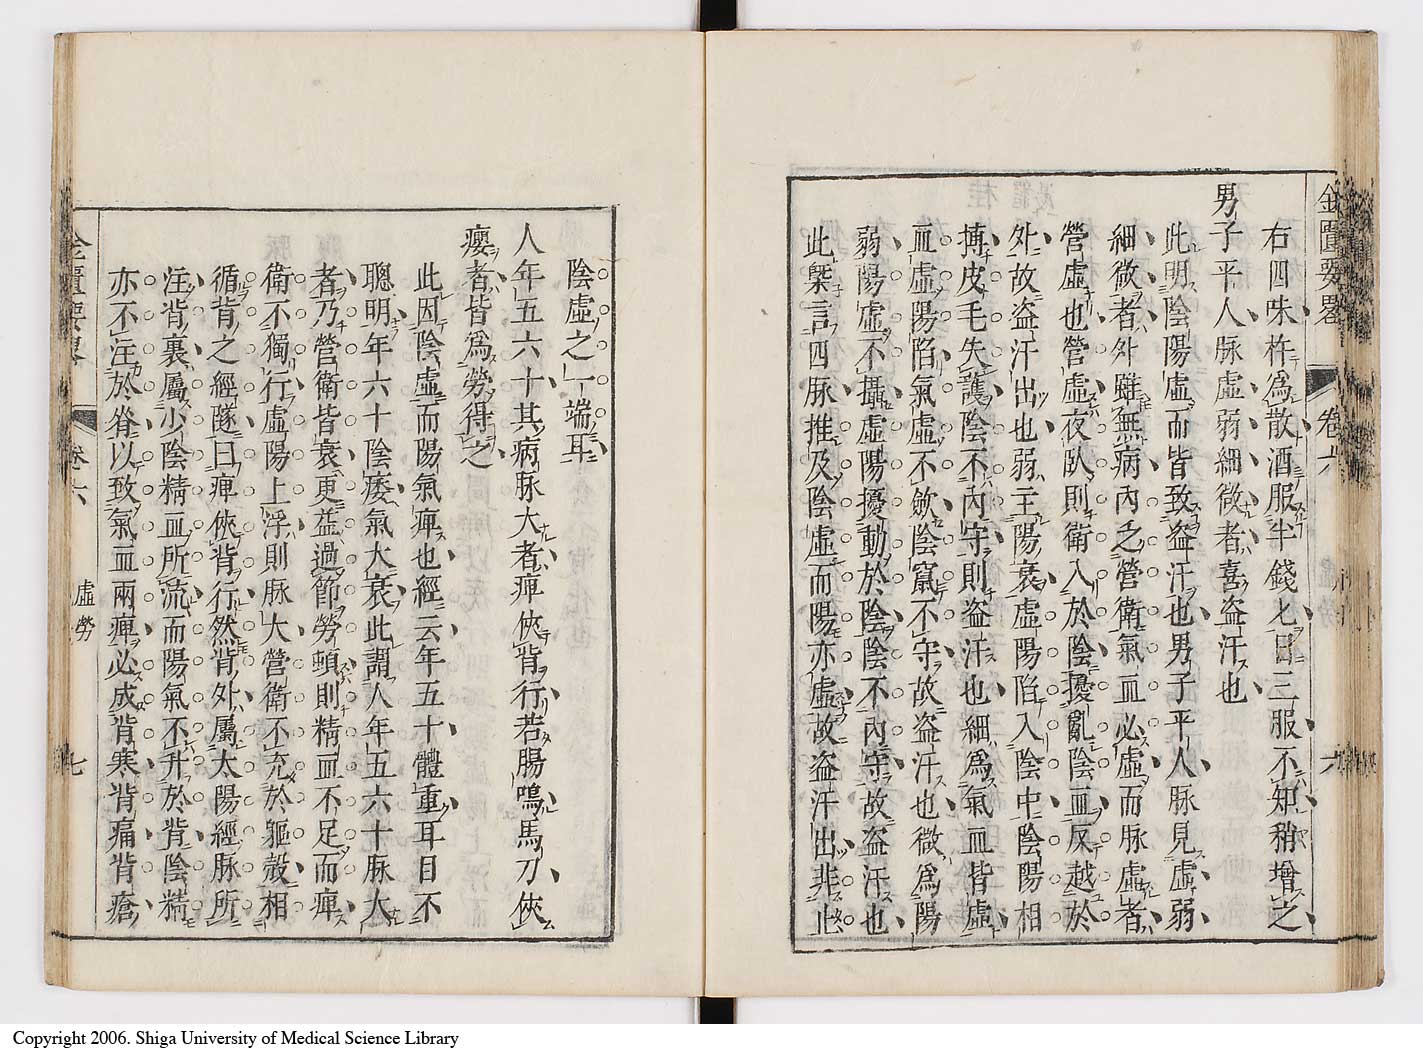 金匱要畧 卷六 六
右四味杵爲散酒服半錢匕日三服不知稍增之
男子平人脉虛弱細微者喜盗汗也
此明陰陽虛而皆致盗汗也男子平人脉見虛弱
細微者外雖無病內之營衛氣血必虛而脉虛者
營虛也營虛夜臥則衛入於陰擾亂陰血反越於
外故盗汗出也弱主陽衰虛陽陷入陰中陰陽相
摶皮毛失護陰不內守則盗汗也細爲氣血皆虛
血虛陽陷氣虛不斂陰竄不守故盗汗也微爲陽
弱陽虛不攝虛陽擾動於陰陰不內守故盗汗也
此槩言四脉推及陰虛而陽亦虛故盗汗出非止
陰虛之一端耳
人年五六十其病脉大者痺俠背行若腸鳴馬刀俠
癭者皆爲勞得之
此因陰虛而陽氣痺也經云年五十體重耳目不
聰明年六十陰痿氣大衰此謂人年五六十脉大
者乃營衛皆衰更益過節勞頓則精血不足而痺
衛不獨行虛陽上浮則脉大營衛不充於軀殼相
循背之經隧曰痺俠背行然背外屬太陽經脉所
注背裏屬少陰精血所流而陽氣不升於背陰精
亦不注於脊以致氣血兩痺必成背寒背痛背瘡
金匱要畧 卷六 虛勞 七
Copyright 2006. Shiga University of Medical Science Library